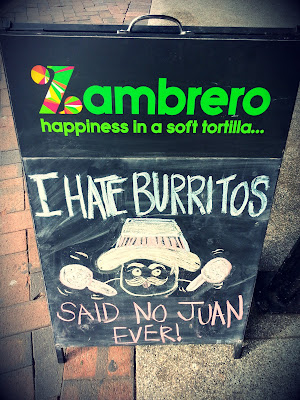 Zambrero
happiness in a soft tortilla...
I HATE BURRITOS
SAID NO JUAN
EVER!